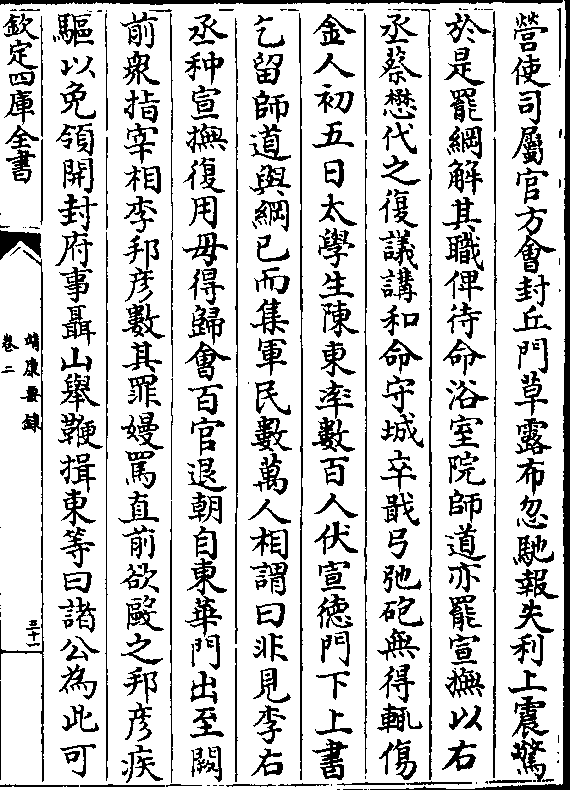 營使司屬官方會封丘門草露布忽馳報失利上震驚
於是罷綱解其職俾待命浴室院師道亦罷宣撫以右
丞蔡懋代之復議講和命守城卒戢弓弛砲無得輒傷
金人初五日太學生陳東率數百人伏宣德門下上書
乞留師道與綱已而集軍民數萬人相謂曰非見李右
丞种宣撫復用毋得歸會百官退朝自東華門出至闕
前衆指宰相李邦彦數其罪嫚罵直前欲毆之邦彦疾
驅以免領開封府事聶山舉鞭揖東等曰諸公為此可
欽定四庫全書
靖康要録
卷二
三十一